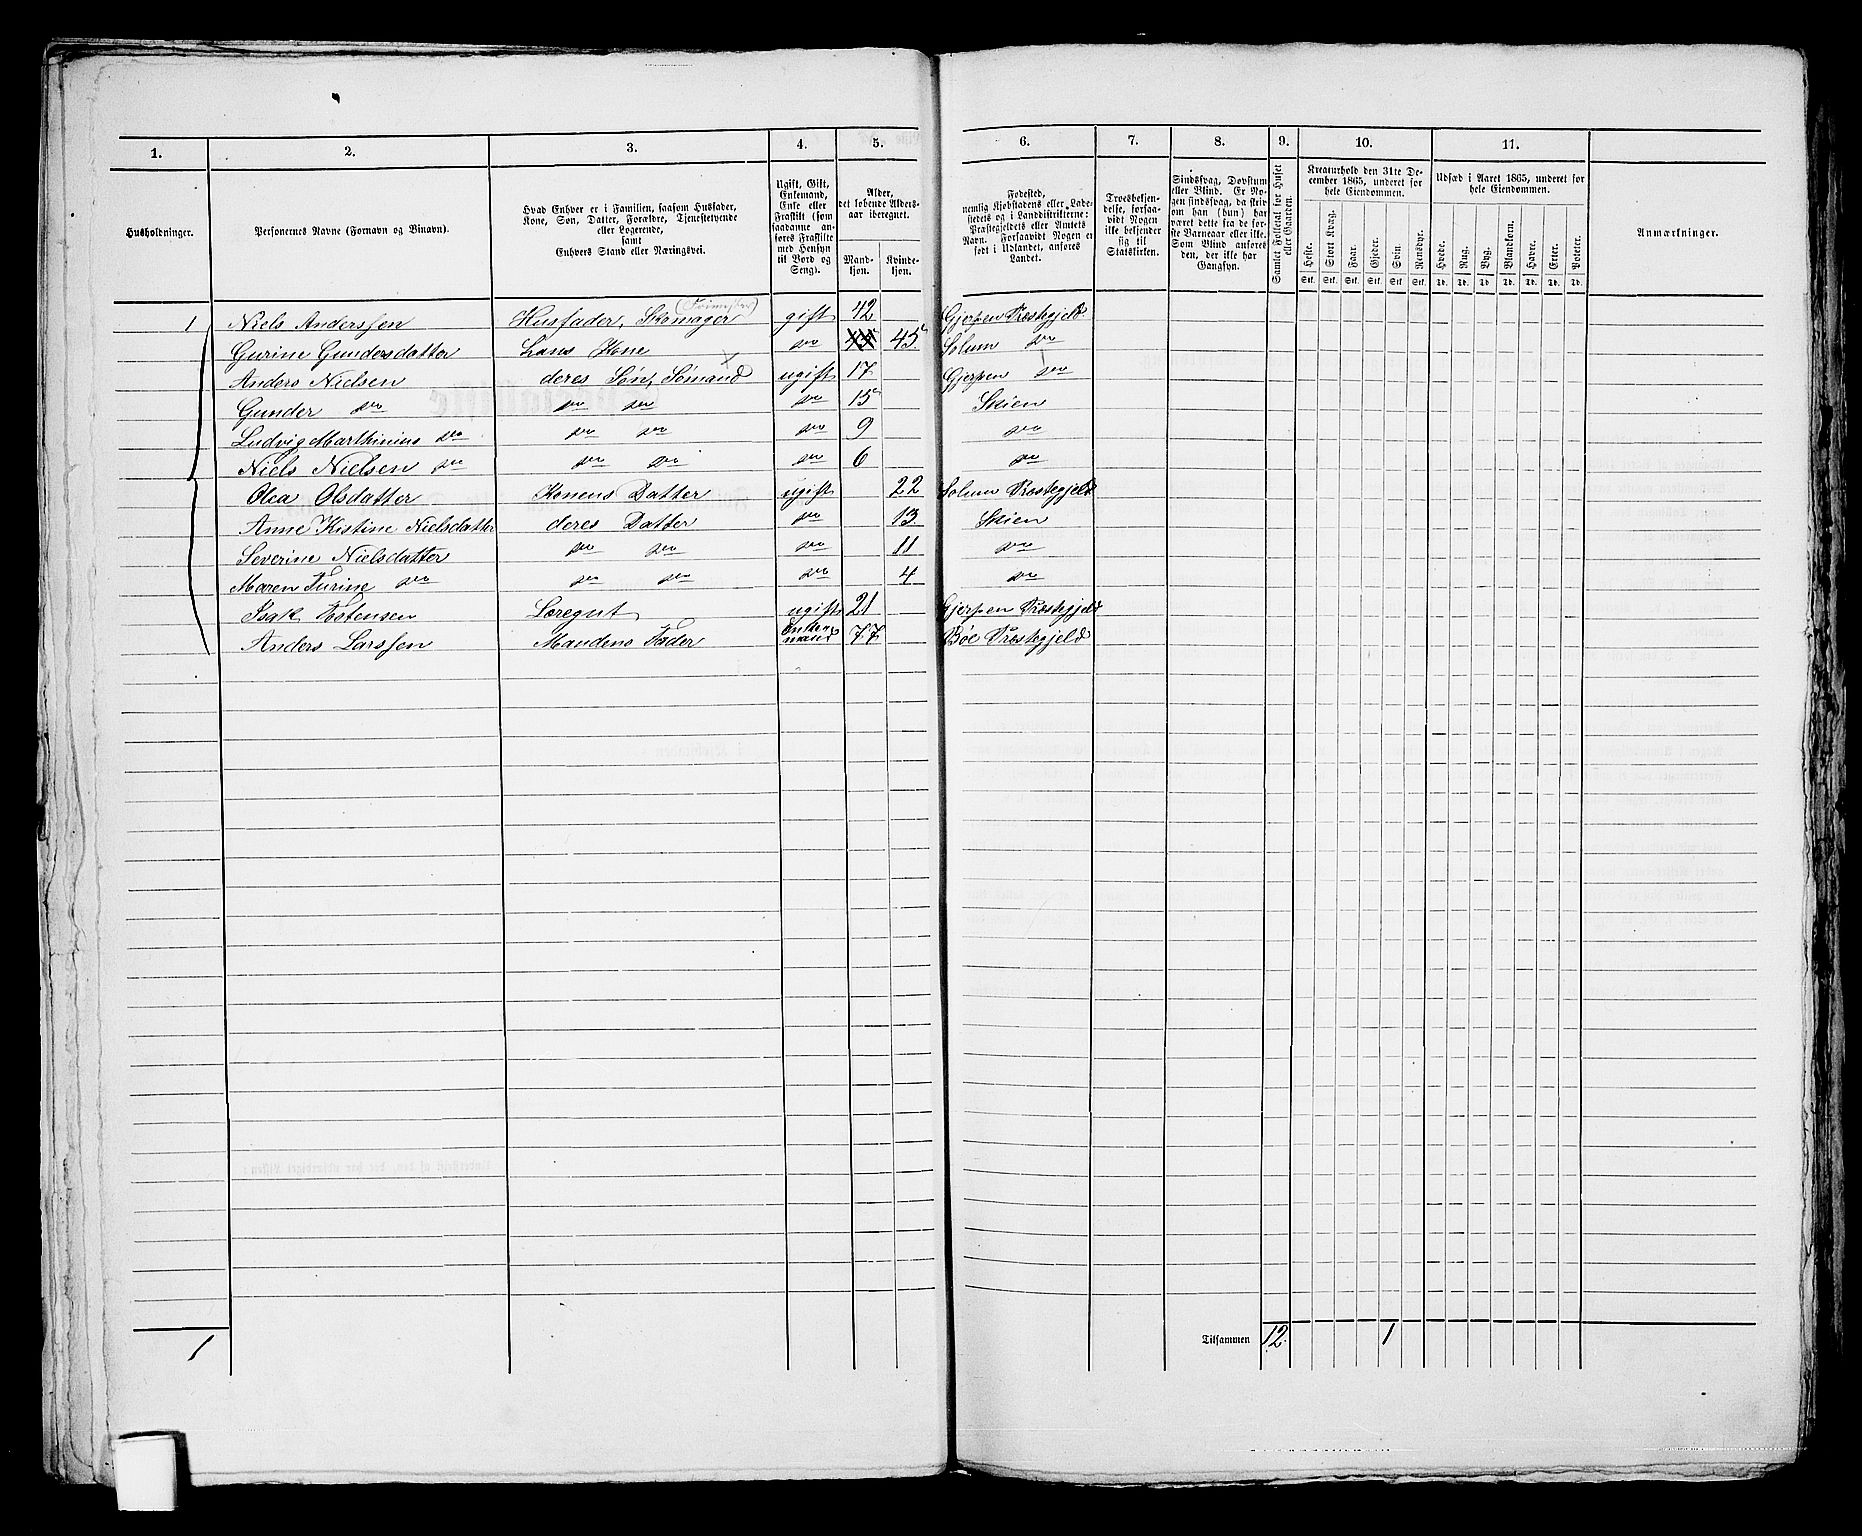 1. 2. 3. 4. 5. 6. 7. 8. 9. 10. 11.
Husholdninger.
Personernes Navne (Fornavn og Binavn).
Hvad Enhver er i Familien, saasom Husfader,
Kone, Søn, Datter, Forældre, Tjenestetyende
eller Logerende,
samt
Enhvers Stand eller Næringsvei.
Ugift, Gift,
Enkemand,
Enke eller
Fraskilt (som
saadanne an-
føres Fraskilte
med Hensyn
til Bord og
Seng).
Alder,
det løbende Alders-
aar iberegnet.
Mand-
kjøn.
Kvinde-
kjøn.
Fødested,
nemlig Kjøbstadens eller Lade-
stedets og i Landdistrikterne:
Præstegjeldets eller Amtets
Navn. Forsaavidt Nogen er
født i Udlandet, anføres
Landet.
Troesbekjen-
delse, forsaa-
vidt Nogen
ikke bekjender
sig til
Statskirken.
Sindssvag, Døvstum
eller Blind. Er No-
gen sindssvag, da skriv
om han (hun) har
været dette fra de før-
ste Barneaar eller ikke.
Som Blind anføres
den, der ikke har
Gangsyn.
Samlet Folketal for Huset
eller Gaarden.
Kreaturhold den 31te De-
cember 1865, underet for
hele Eiendommen.
Heste. Stort Kvæg. Faar. Gjeder. Svin. Rensdyr.
Stk. Stk. Stk. Stk. Stk. Stk.
Udsæd i Aaret 1865, underet for
hele Eiendommen.
Hvede. Rug. Byg. Blandkorn. Havre. Erter. Poteter.
Td. Td. Td. Td. Td. Td. Td.
Anmærkninger.
1 Niels Anderssen Husfader, Skomager gift 42 Gjerpen Præstegjeld
Gurine Gundersdatter Hans Kone do 45 45 Solum do
Anders Nielsen deres Søn, Sømand ugift 17 Gjerpen do
Gunder do do do do 15 Skien
Ludvig Marthinius do do do do 9 do
Niels Nielsen do do do do 6 do
Olea Olsdatter Konens Datter ugift 22 Solum Præstegjeld
Anne Kistine Nielsdatter deres Datter do 13 Skien
Severine Nielsdatter do do do 11 do
Maren Turine do do do do 4 do
Isak Læregut ugift 21 Gjerpen Præstegjeld
Anders Larssen Mandens Fader Enkemand 77 Bøe Præstegjeld
1 Tilsammen 12. 1